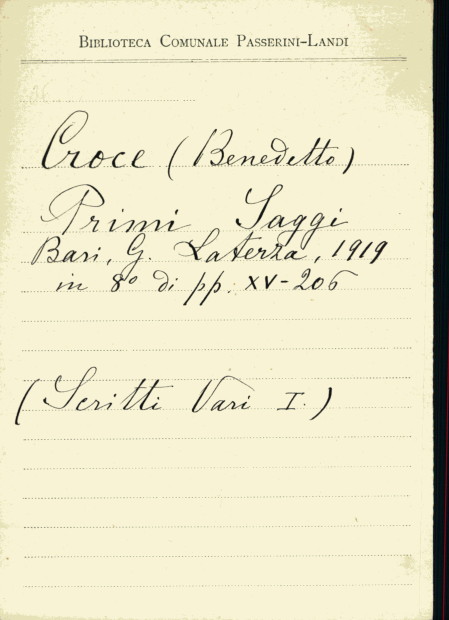 BIBLIOTECA COMUNALE PASSERINI-LANDI
Croce (Benedetto)
Primi Saggi
Bari, G. Laterza, 1919
in 8º di pp. XV-206
(Scritti Vari I.)